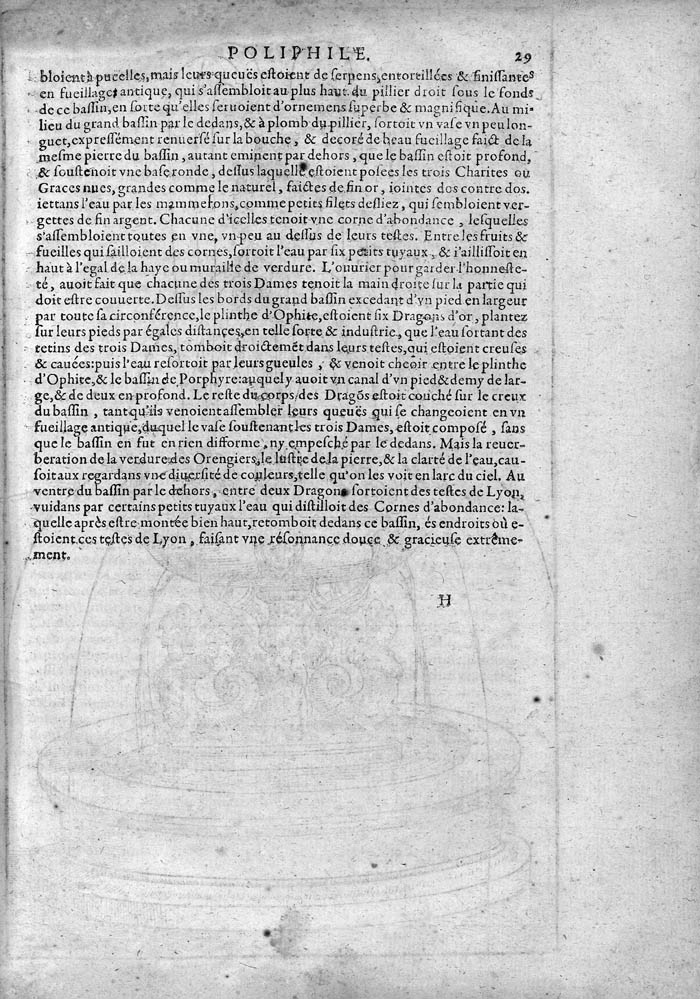 POLIPHILE. 29
bloient à pucelles, mais leurs queuës eſtoient de ſerpens, entortillées & finiſſantes
en fueillage antique, qui s'aſſembloit au plus haut du pillier droit ſous le fonds
de ce baſſin, en ſorte qu'elles ſeruoient d'ornemens ſuperbe & magnifique. Au mi-
lieu du grand baſſin par le dedans, & à plomb du pillier, ſortoit vn vaſe vn peu lon-
guet, expreſſément renuerſé ſur la bouche, & decoré de beau fueillage faict de la
meſme pierre du baſſin, autant eminent par dehors, que le baſſin eſtoit profond,
& ſouſtenoit vne baſe ronde, deſſus laquelle eſtoient poſees les trois Charites ou
Graces nues, grandes comme le naturel, faictes de fin or, iointes dos contre dos.
iettans l'eau par les mammerons, comme petits filets deſliez, qui ſembloient ver-
gettes de fin argent. Chacune d'icelles tenoit vne corne d'abondance, leſquelles
s'aſſembloient toutes en vne, vn peu au deſſus de leurs teſtes. Entre les fruits &
fueilles qui ſailloient des cornes, ſortoit l'eau par ſix petits tuyaux, & i'aillissoit en
haut à l'egal de la haye ou muraille de verdure. L'ouurier pour garder l'honneſte-
té, auoit fait que chacune des trois Dames tenoit la main droite ſur la partie qui
doit eſtre couuerte. Deſſus les bords du grand baſſin excedant d'vn pied en largeur
par toute ſa circonférence, le plinthe d'Ophite, eſtoient ſix Dragons d'or, plantez
ſur leurs pieds par égales diſtançes, en telle ſorte & induſtrie, que l'eau ſortant des
retins des trois Dames, tomboit droictemēt dans leurs teſtes, qui eſtoient creuſes
& cauées: puis l'eau reſortoit par leurs gueules, & venoit cheoir entre le plinthe
d'Ophite, & le baſſin de Porphyre: auquel y auoit vn canal d'vn pied & demy de lar-
ge, & de deux en profond. Le reſte du corps des Dragōs eſtoit couché ſur le creux
du baſſin, tant qu'ils venoient aſſembler leurs queuës qui ſe changeoient en vn
fueillage antique, duquel le vaſe ſouſtenant les trois Dames, eſtoit compoſé, ſans
que le baſſin en fut en rien difforme, ny empeſché par le dedans. Mais la reuer-
beration de la verdure des Orengiers, le luſtre de la pierre, & la clarté de l'eau, cau-
ſoit aux regardans vne diuerſité de couleurs, telle qu'on les voit en l'arc du ciel. Au
ventre du baſſin par le dehors, entre deux Dragons ſortoient des teſtes de Lyon,
vuidans par certains petits tuyaux l'eau qui diſtilloit des Cornes d'abondance: la-
quelle après eſtre montée bien haut, retomboit dedans ce baſſin, és endroits où e-
ſtoient ces teſtes de Lyon, faiſant vne réſonnance douce & gracieuſe extrême-
ment.
H